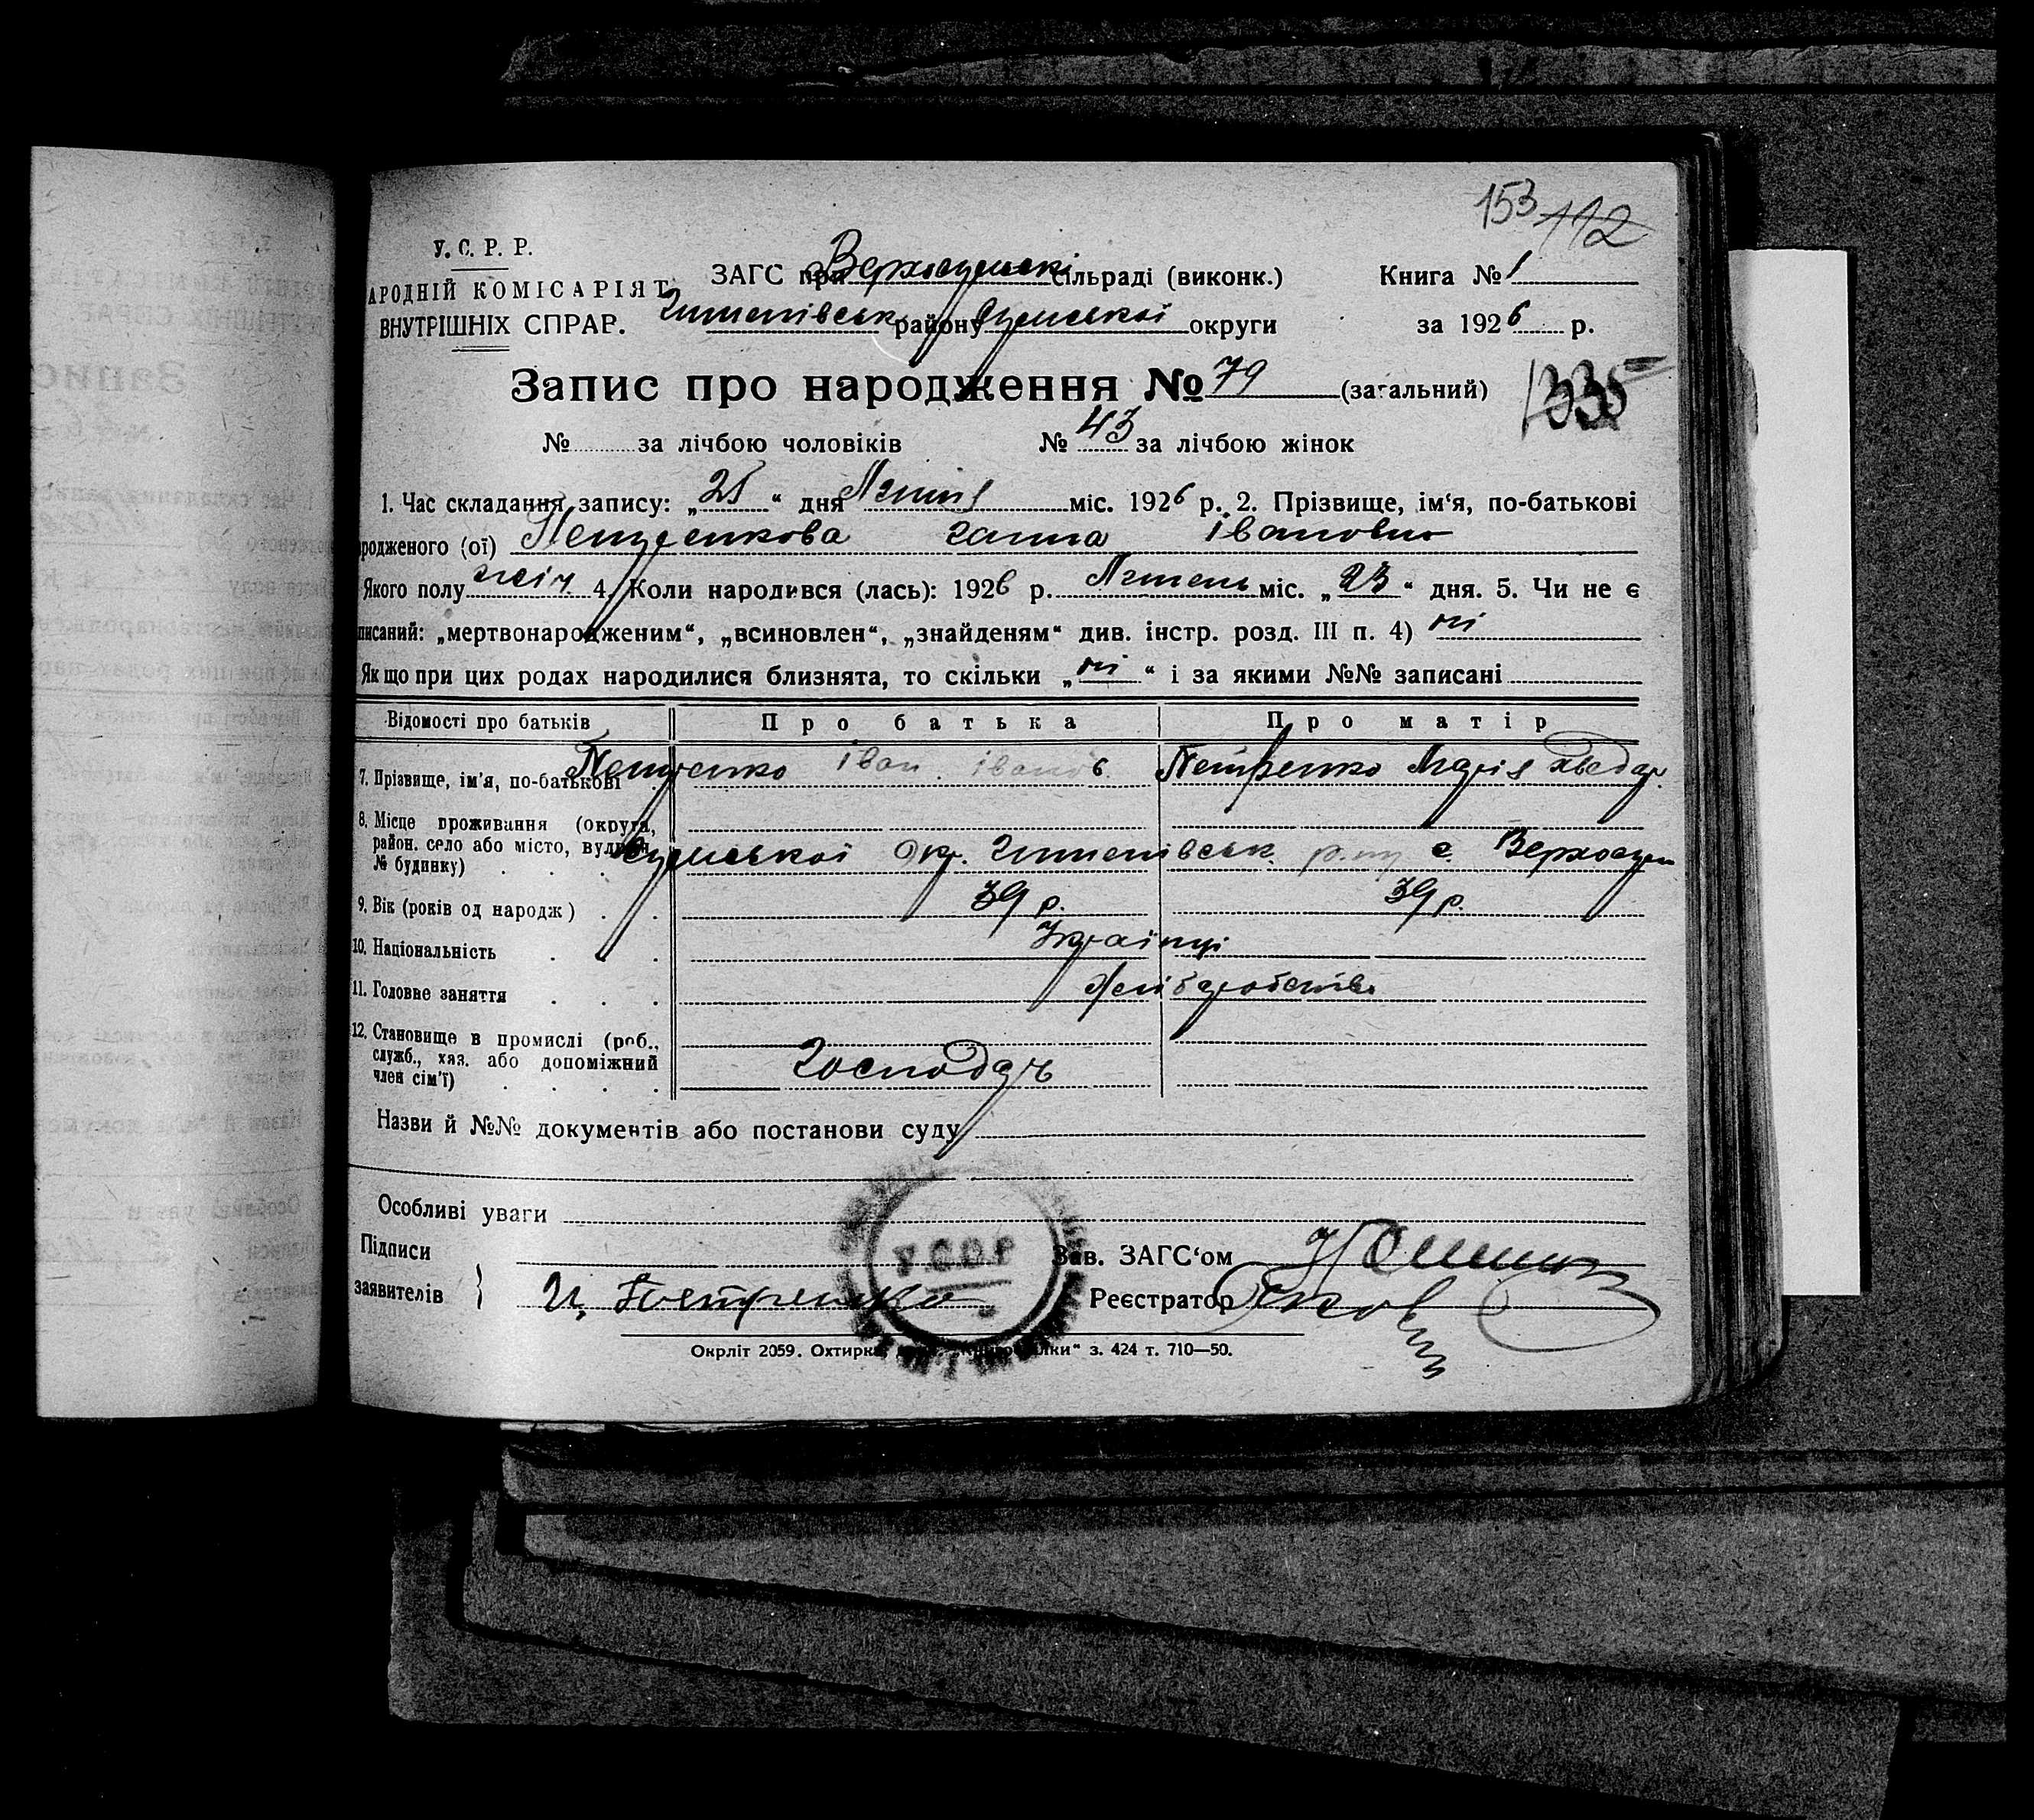 153 112
У. С. Р. Р.
АРОДНІЙ КОМІСАРІЯТ
ВНУТРІШНІХ СПРАР.
ЗАГС при Верхосульскі сільраді (виконк.)
Книга № 1
Штепівськ району Сумської округи
за 1926 р.
Запис про народження № 79 (загальний)
1335
№ за лічбою чоловіків № 43 за лічбою жінок
1. Час складання запису: „ 25 “ дня Липня міс. 1926 р. 2. Прізвище, ім‘я, по-батькові
родженого (ої) Петренкова Ганна Івановна
Якого полу жіч. 4. Коли народився (лась): 1926 р. Липень міс. „ 23 “ дня. 5. Чи не є
писаний: „мертвонародженим“, „всиновлен“, „знайденям“ див. інстр. розд. III п. 4) ні
Якщо при цих родах народилися близнята, то скільки „ ні “ і за якими №№ записані
Відомості про батьків Про батька Про матір
7. Прізвище, ім'я, по-батькові Петренко Іван Іванов. Петренко Марія Хведор.
8. Місце проживання (округа,
район, село або місто, вулиця,
№ будинку) Сумської Окр. Штепівськ. р-ну с. Верхосули
9. Вік (років од народж) 39 р. 39 р.
10. Національність Українці
11. Головне заняття Хліборобство
12. Становище в промислі (роб.,
служб., хаз. або допоміжний
член сім'ї) Господарь
Назви й №№ документів або постанови суду
Особливі уваги
Підписи
заявителів } И. Петренко
У.С.Р.Р
Зав. ЗАГС‘ом
Реєстратор
Окрліт 2059. Охтирка, з. 424 т. 710—50.